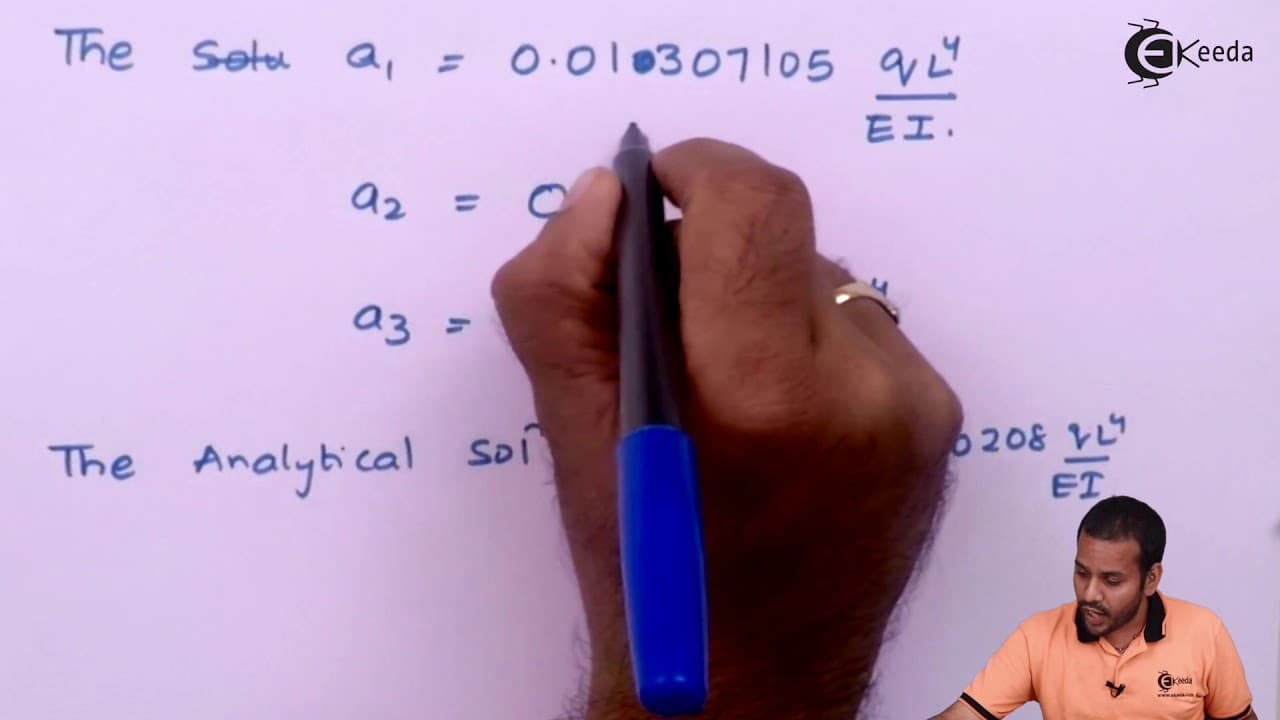 The Solu a1 = 0.010307105 qL⁴
EI.
Keeda
a2 = 0
a3 =
The Analytical Sol 0208 qL⁴
EI
Keeda